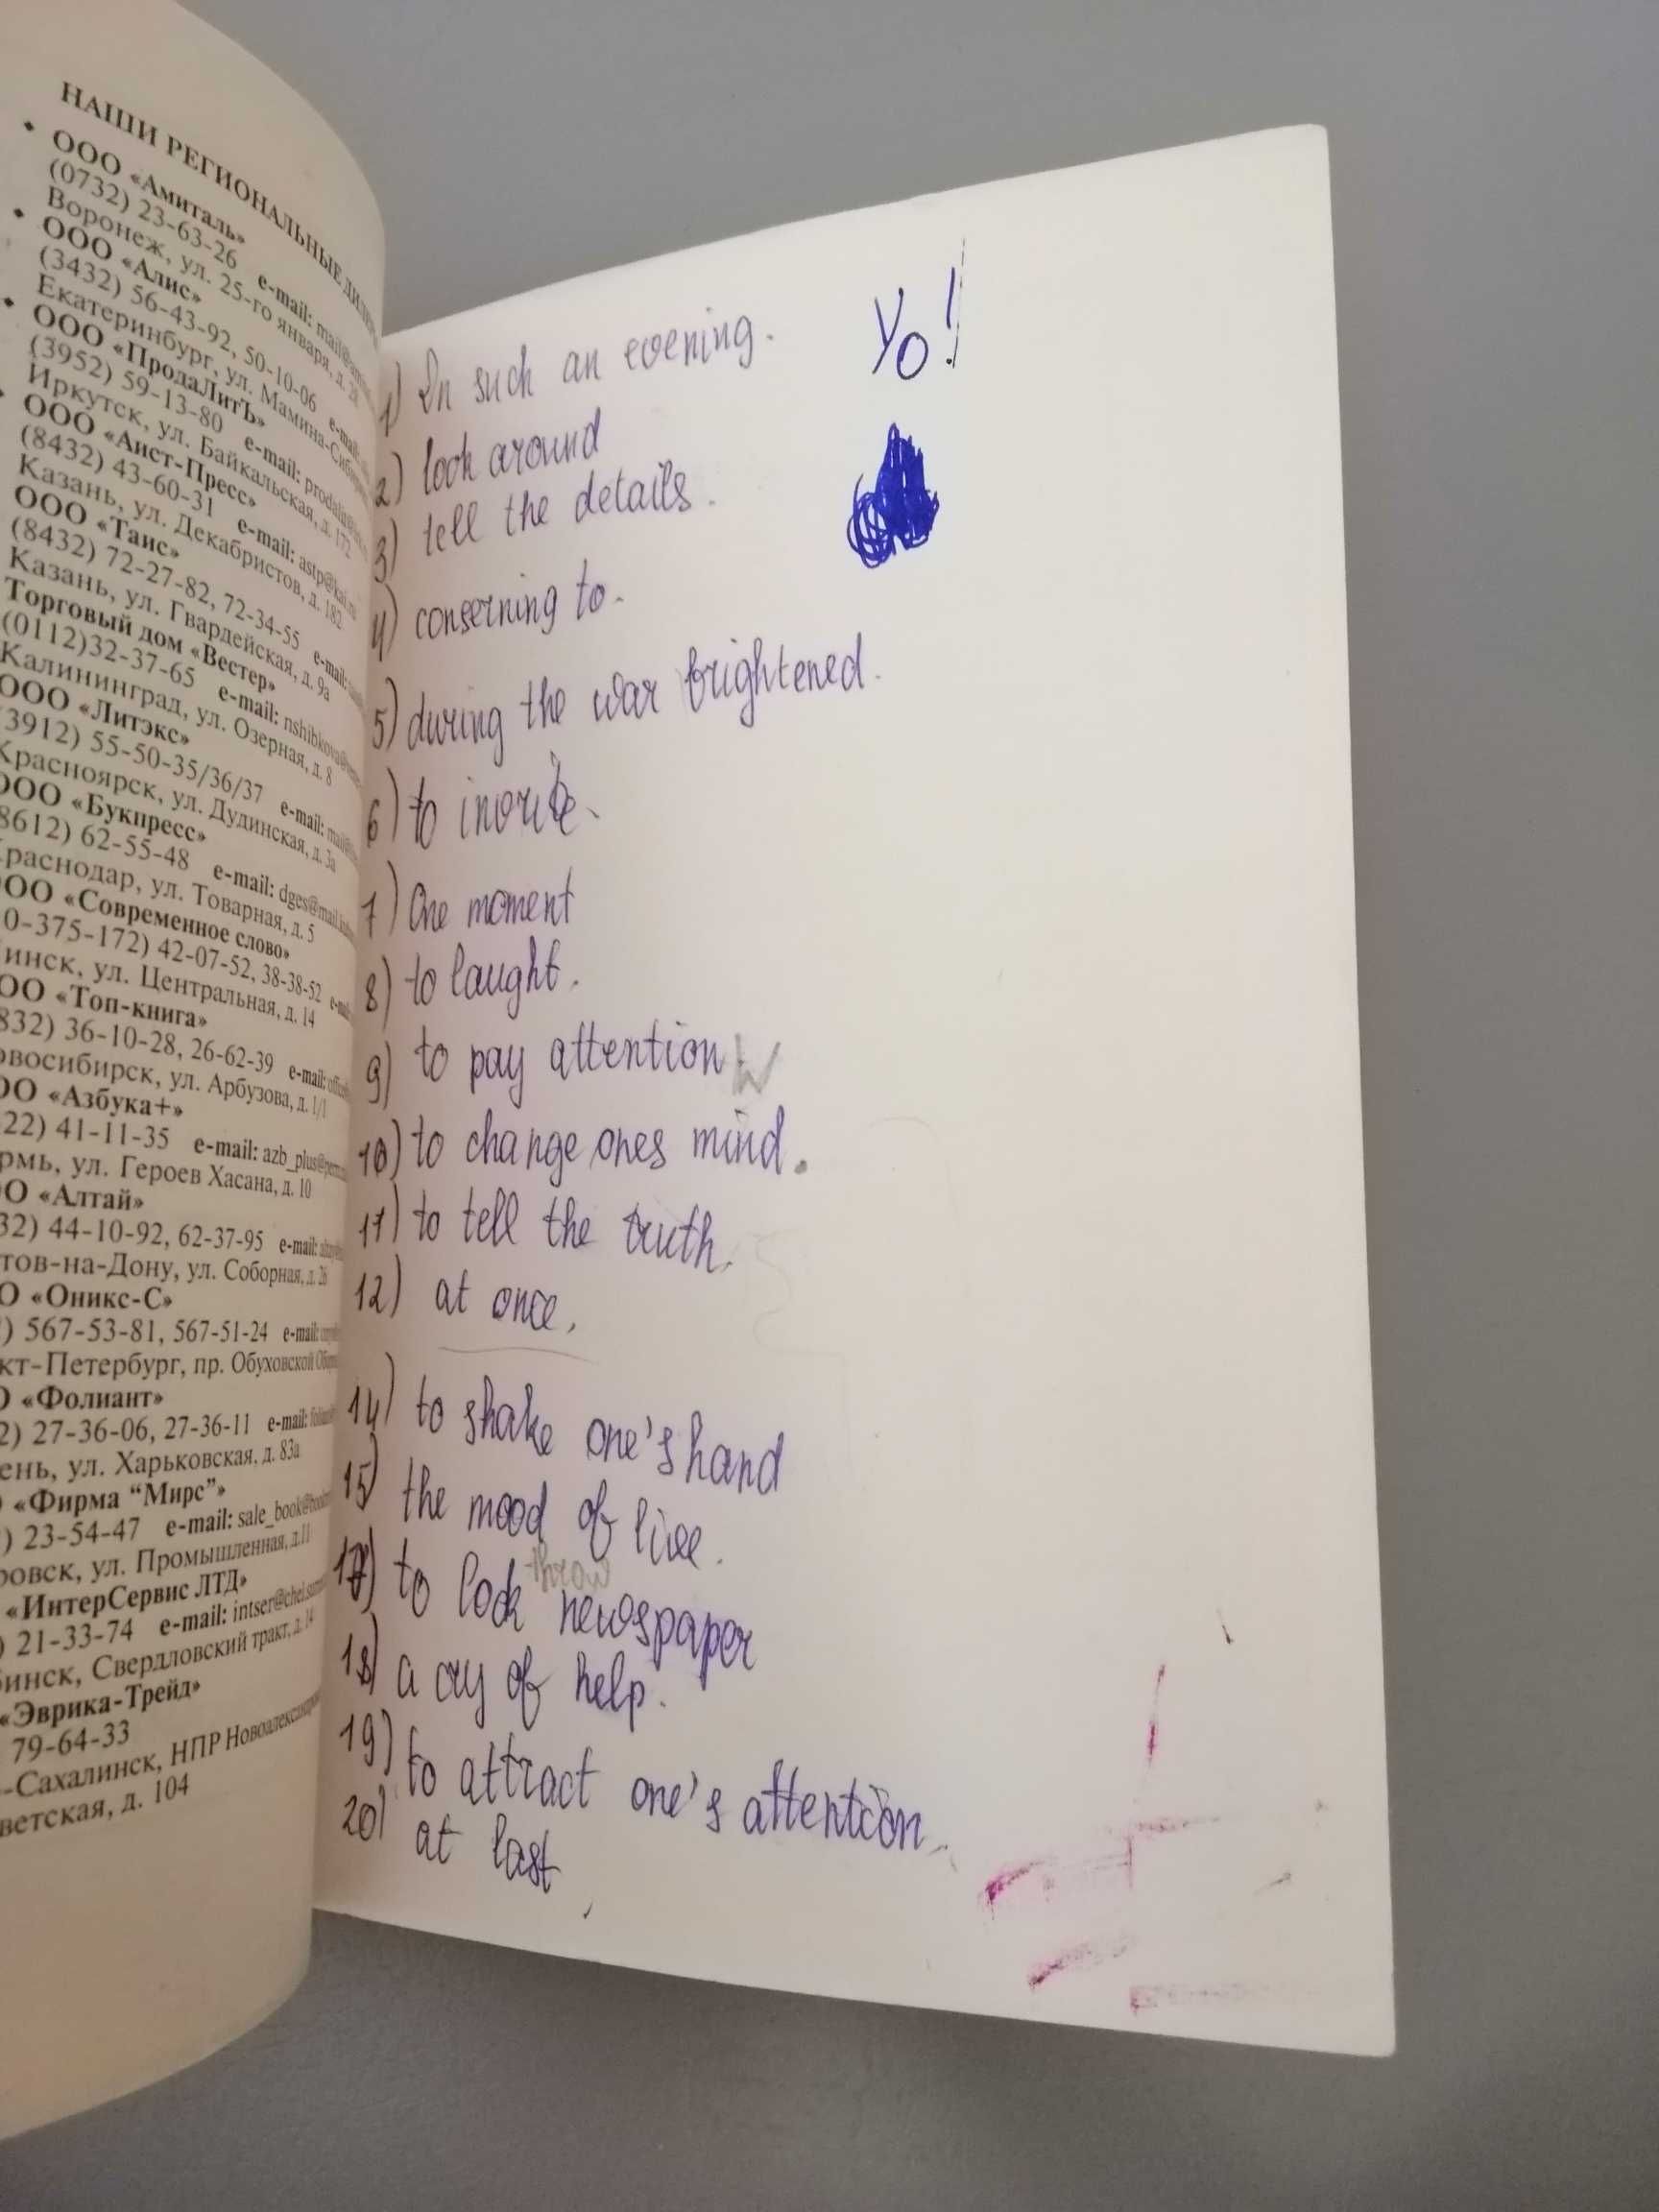 НАШИ РЕГИОНАЛЬНЫЕ
• ООО «Амиталь»
(0732) 23-63-26 e-mail:
Воронеж, ул. 25-го января, д.
• ООО «Алис»
(3432) 56-43-92, 50-10-06
Екатеринбург, ул. Мамина-
• ООО «ПродаЛитЪ»
(3952) 59-13-80 e-mail:
Иркутск, ул. Байкальская, д. 172
ООО «Аист-Пресс»
(8432) 43-60-31 e-mail:
Казань, ул. Декабристов, д. 182
ООО «Таис»
(8432) 72-27-82, 72-34-55 e-mail:
Казань, ул. Гвардейская, д. 9а
Торговый дом «Вестер»
(0112)32-37-65 e-mail:
Калининград, ул. Озерная, д. 8
ООО «Литэкс»
3912) 55-50-35/36/37 e-mail:
Красноярск, ул. Дудинская, д. 3а
ООО «Букпресс»
8612) 62-55-48 e-mail:
раснодар, ул. Товарная, д. 5
ОО «Современное слово»
0-375-172) 42-07-52, 38-38-52
инск, ул. Центральная, д. 14
ОО «Топ-книга»
832) 36-10-28, 26-62-39 e-mail:
овосибирск, ул. Арбузова, д. 1/1
ОО «Азбука+»
22) 41-11-35 e-mail:
рмь, ул. Героев Хасана, д. 10
О «Алтай»
32) 44-10-92, 62-37-95 e-mail:
тов-на-Дону, ул. Соборная, д. 26
О «Оникс-С»
) 567-53-81, 567-51-24 e-mail:
кт-Петербург, пр. Обуховской
О «Фолиант»
2) 27-36-06, 27-36-11 e-mail:
ень, ул. Харьковская, д. 83а
«Фирма “Мирс”»
) 23-54-47 e-mail:
ровск, ул. Промышленная, д.11
«ИнтерСервис ЛТД»
) 21-33-74 e-mail:
бинск, Свердловский тракт, д. 14
«Эврика-Трейд»
79-64-33
-Сахалинск, НПР
ветская, д. 104
Yo!
1) In such an evening.
2) look around
3) tell the details.
4) conserning to.
5) during the war brightened.
6) to invite.
7) One moment
8) to laught.
9) to pay attention
10) to change ones mind.
11) to tell the truth.
12) at once.
14) to shake one's hand
15) the mood of live.
throw
17) to look newspaper
18) a cry of help.
19) to attract one's attention.
20) at last